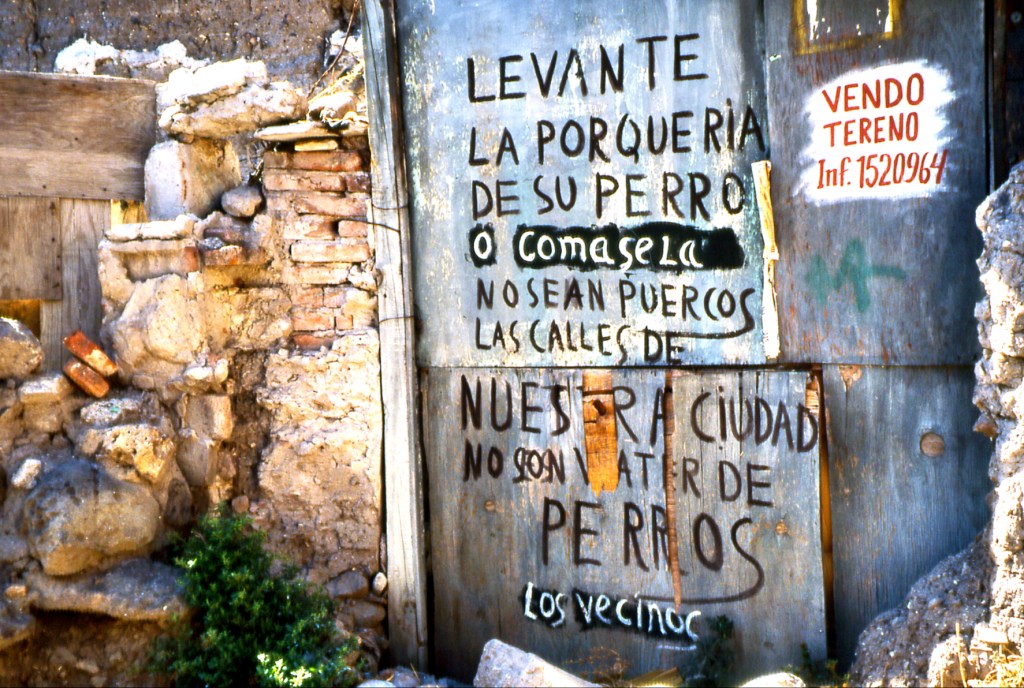 LEVANTE
LA PORQUERIA
DE SU PERRO
O COMASELA
NO SEAN PUERCOS
LAS CALLES DE
NUESTRA CIUDAD
NO SON WATER DE
PERROS
LOS VECINOC
VENDO
TERENO
Inf. 1520964